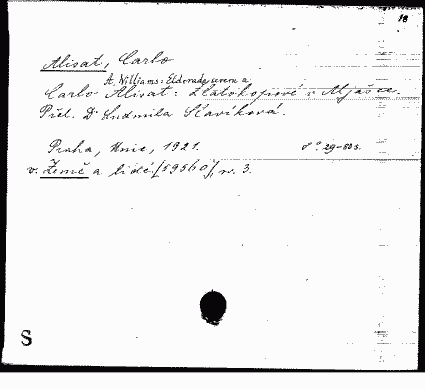 18
Alisat, Carlo
A. Williams: Eldorado severu a
Carlo Alisat: Zlatokopové v Aljašce.
Přel. Dr Ludmila Slavíková.
Praha, Unie, 1921. 8°. 29-50 s.
v. Země a lidé. [59560], sv. 3.
S